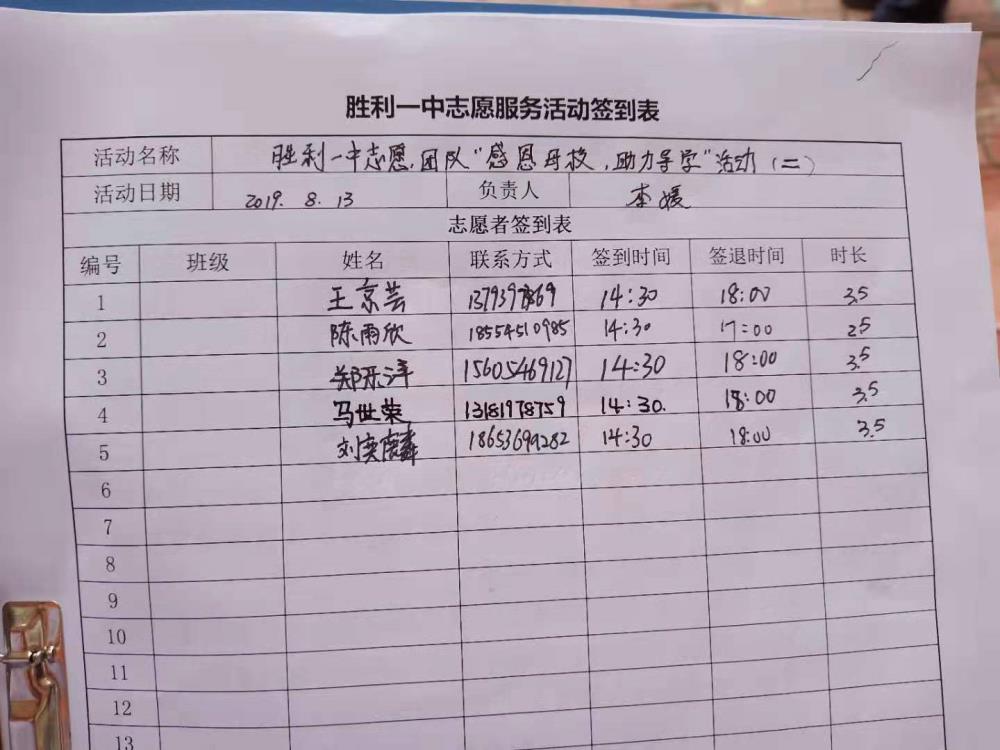 胜利一中志愿服务活动签到表
活动名称 胜利一中志愿团队“感恩母校,助力导学”活动(二)
活动日期 2019. 8. 13 负责人 李媛
志愿者签到表
编号 班级 姓名 联系方式 签到时间 签退时间 时长
1 王京芸 14:30 18:00 3.5
2 陈雨欣 18554510985 14:30 17:00 2.5
3 郑乐洋 15605469127 14:30 18:00 3.5
4 马世荣 13181978759 14:30. 18:00 3.5
5 刘奕麟 18653699282 14:30 18:00 3.5
6
7
8
9
10
11
12
13